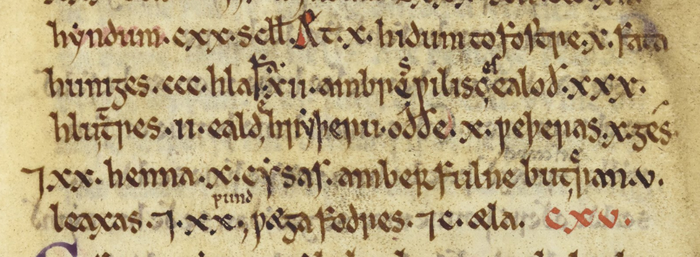 hyndum. cxx. scll̃. Æt .x. hidum to fostre .x. fata
huniges. ccc. hlafa. xii. ambres ƿilisces ealoð. xxx.
hluttres. ii. ealde hryþeru. oððe .x. ƿeþeras. x. gés
⁊ .xx. henna. x. cysas. amber fulne buteran. v.
leaxas. ⁊ .xx. pund ƿæga fodres. ⁊ c. æla. cxv.